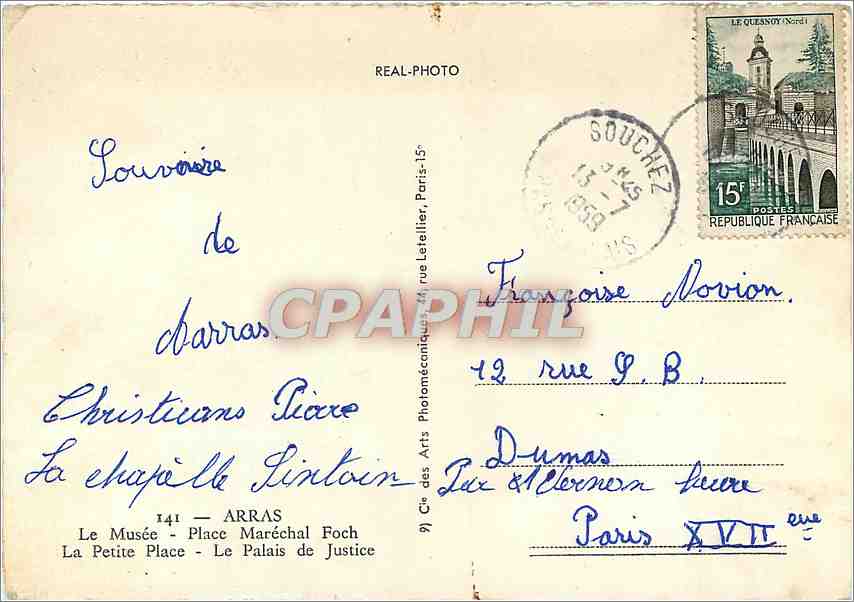 REAL-PHOTO
LE QUESNOY (Nord)
15F
POSTES
REPUBLIQUE FRANÇAISE
SOUCHEZ
13 - 7
1959
Souvoière
de
Darras
Christicans Piare
La chapèlle Sintoin
141 — ARRAS
Le Musée - Place Maréchal Foch
La Petite Place - Le Palais de Justice
9) Cie des Arts Photomécaniques, 44, rue Letellier, Paris-15e
CPAPHIL
Françoise Novion.
12 rue J. B.
Dumas
Paris XVII eme